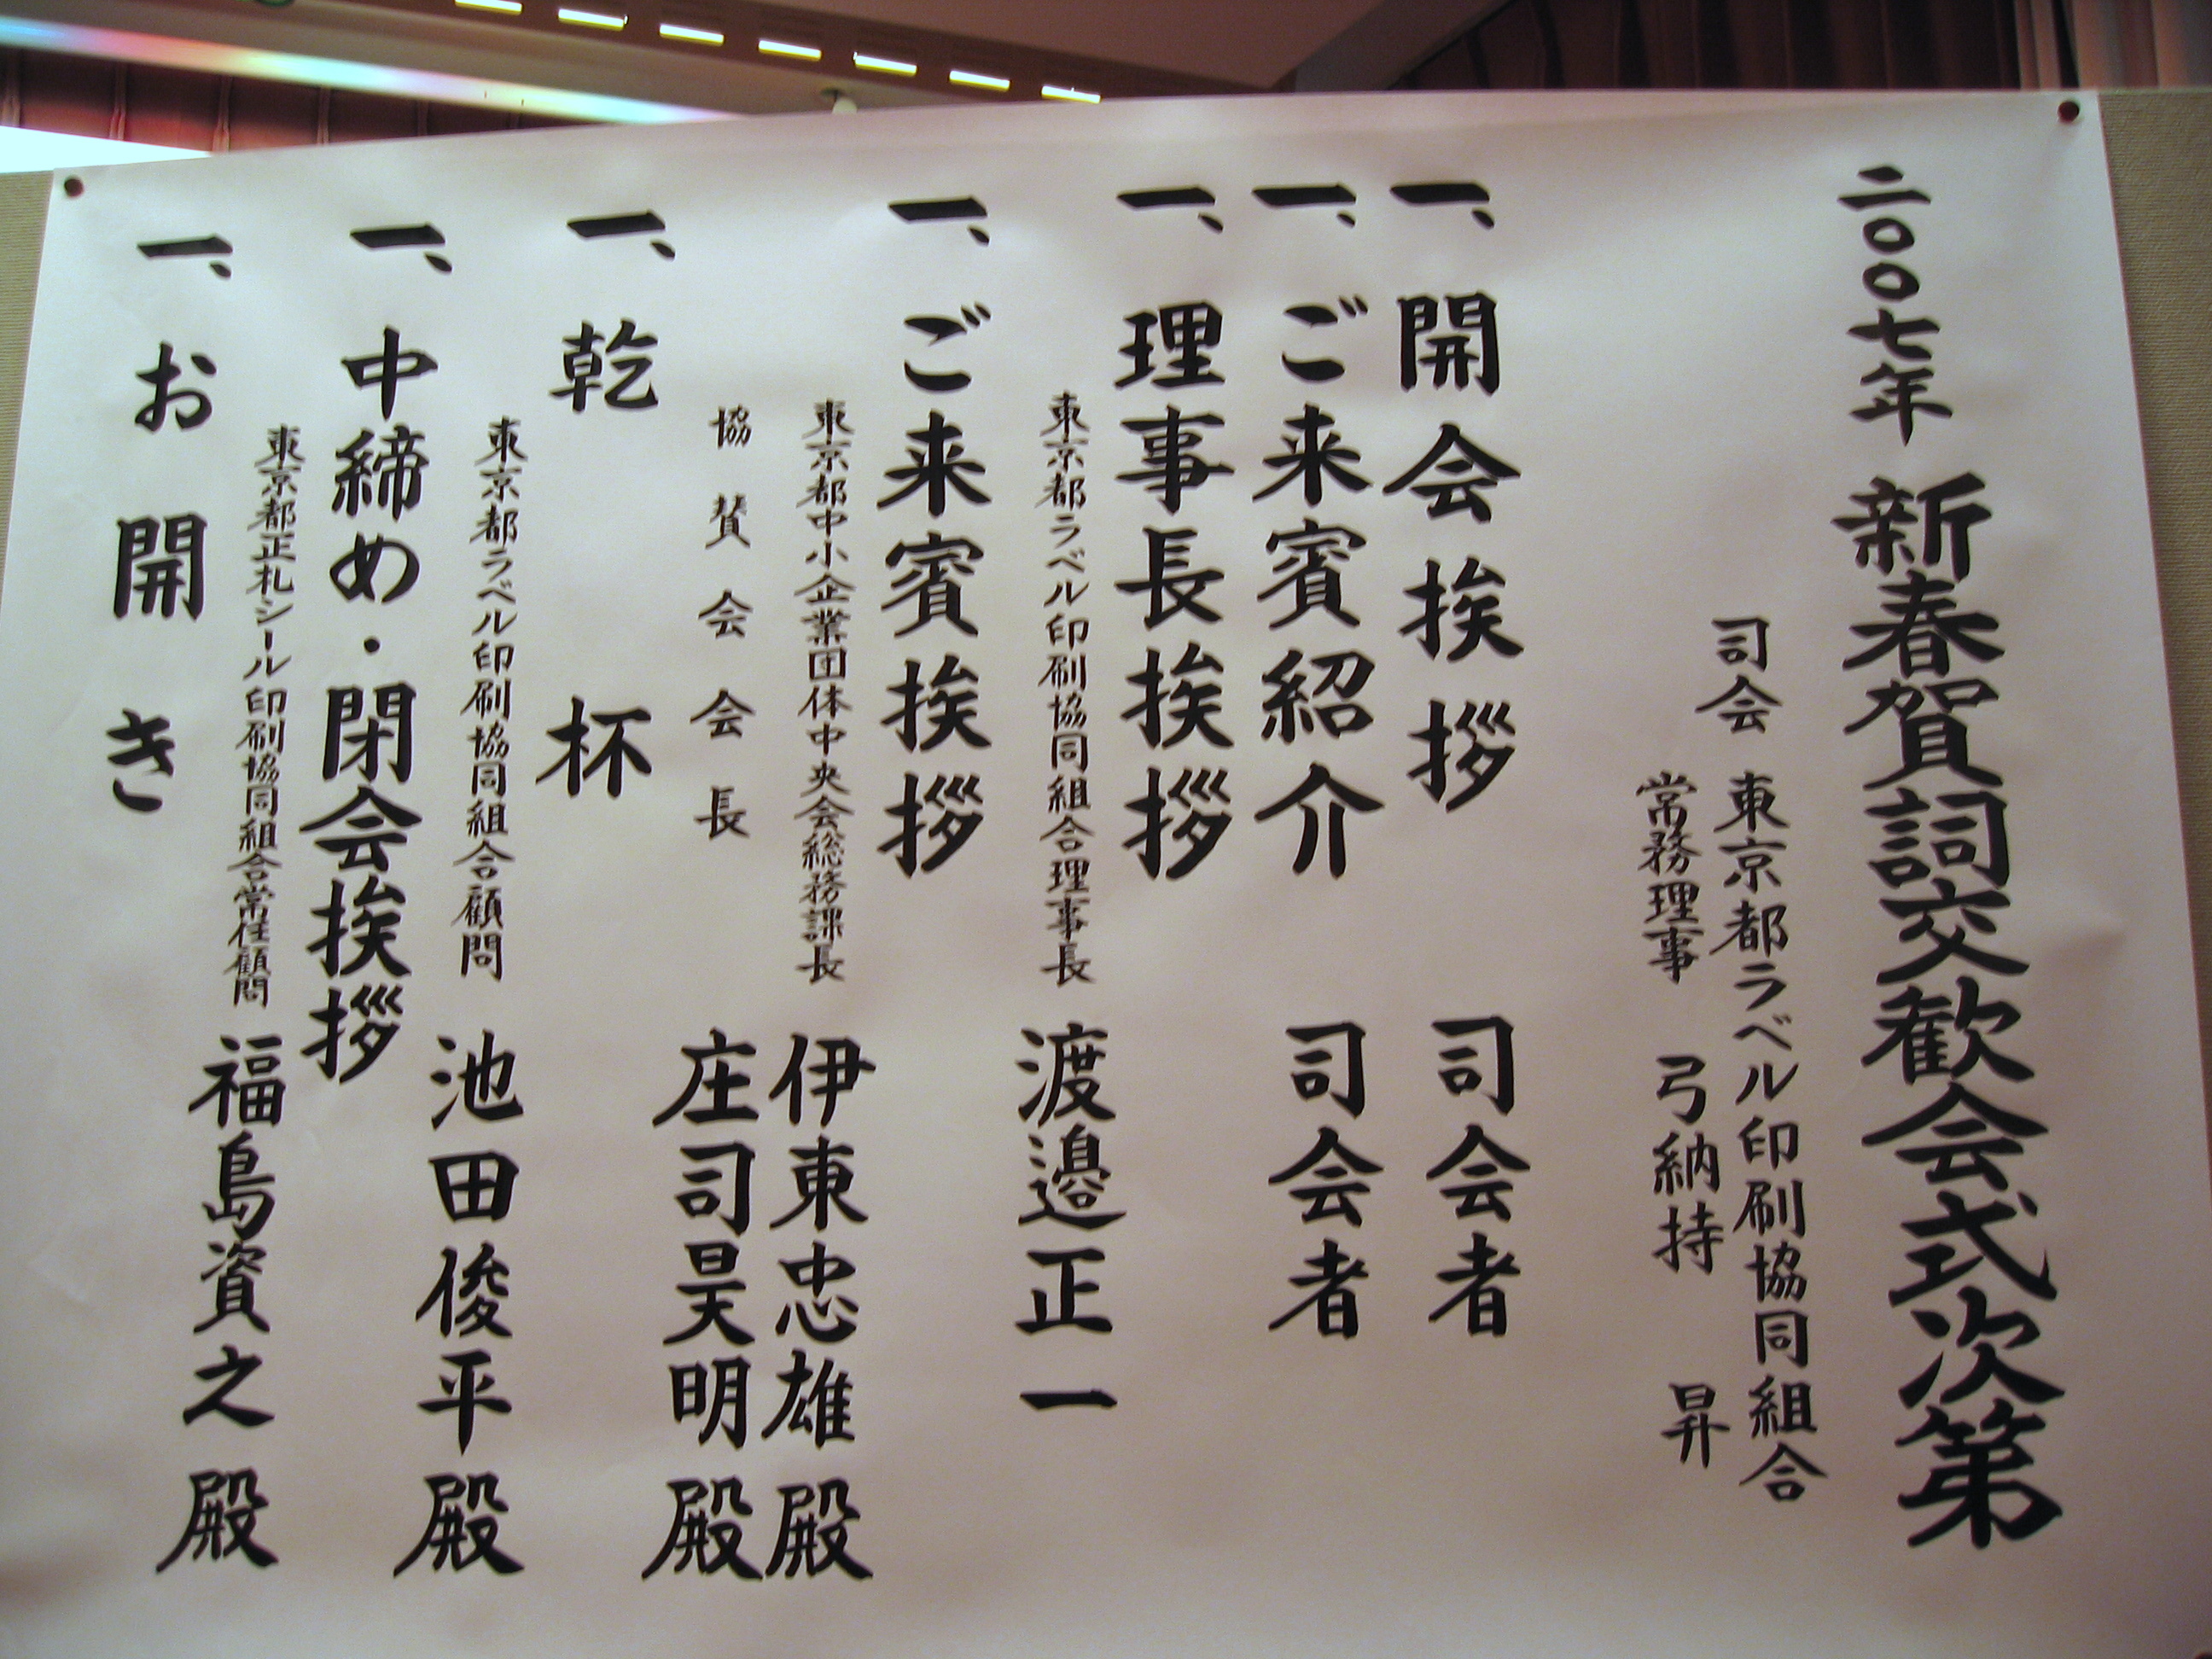 二〇〇七年 新春賀詞交歓会式次第
司会 東京都ラベル印刷協同組合
常務理事 弓納持 昇
一、開会挨拶 司会者
一、ご来賓紹介 司会者
一、理事長挨拶
東京都ラベル印刷協同組合理事長 渡邉正一
一、ご来賓挨拶
東京都中小企業団体中央会総務課長 伊東忠雄殿
協賛会会長 庄司昊明殿
一、乾杯
東京都ラベル印刷協同組合顧問 池田俊平殿
一、中締め・閉会挨拶
東京都正札シール印刷協同組合常任顧問 福島資之殿
一、お開き